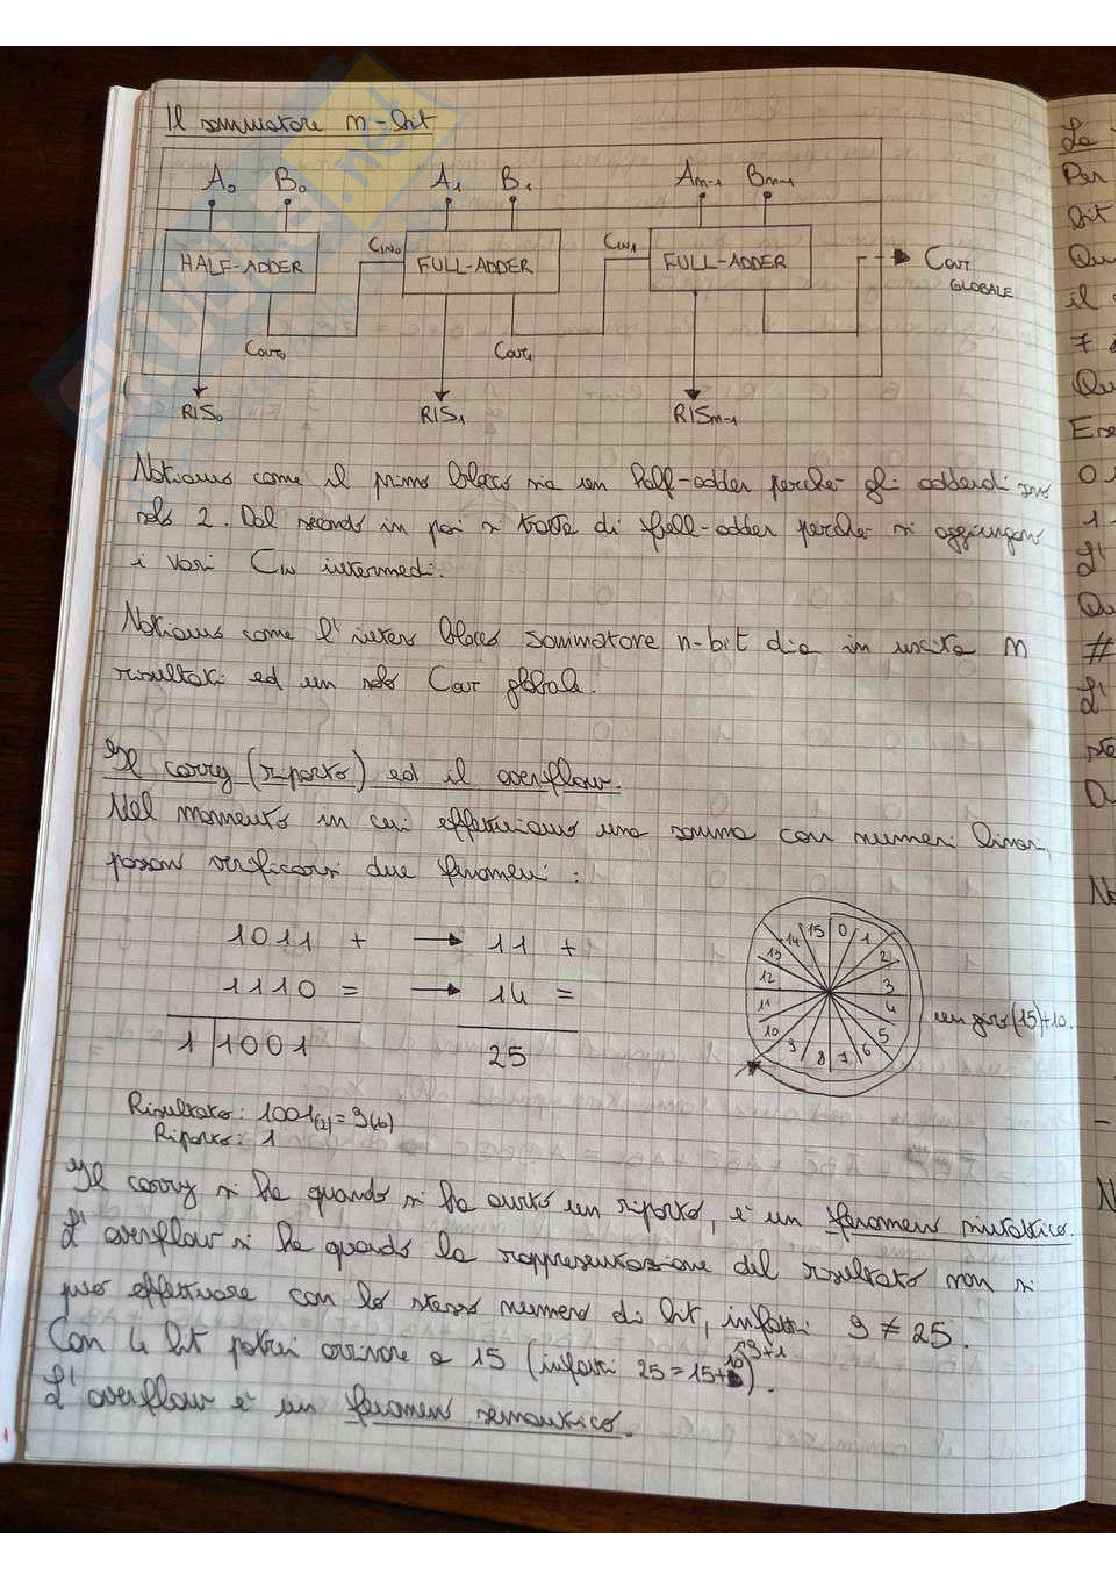 Il sommatore n-bit
A₀ B₀ A₁ B₁ Aₙ₋₁ Bₙ₋₁
HALF-ADDER CIN₀ FULL-ADDER CIN₁ FULL-ADDER COUT
GLOBALE
COUT₀ COUT₁
RIS₀ RIS₁ RISₙ₋₁
Notiamo come il primo blocco sia un half-adder perché gli addendi sono
solo 2. Dal secondo in poi si tratta di full-adder perché si aggiungono
i vari CIN intermedi.
Notiamo come l'intero blocco sommatore n-bit dia in uscita n
risultati ed un solo COUT globale.
Il carry (riporto) ed il overflow.
Nel momento in cui effettuiamo una somma con numeri binari
possono verificarsi due fenomeni:
1011 + → 11 +
1110 = → 14 =
1 1001 25
0 1 2 3 4 5 6 7 8 9 10 11 12 13 14 15
un giro (15)+10.
Risultato: 1001(2) = 9(10)
Riporto: 1
Il carry si ha quando si ha avuto un riporto, è un fenomeno sintattico.
L'overflow si ha quando la rappresentazione del risultato non si
può effettuare con lo stesso numero di bit, infatti 9 ≠ 25.
Con 4 bit potrei arrivare a 15 (infatti 25 = 15+10).
9+1
L'overflow è un fenomeno semantico.
La
Per
bit
Qu
il
7
Qu
Ese
0
1
L'
Qu
#
L'
D